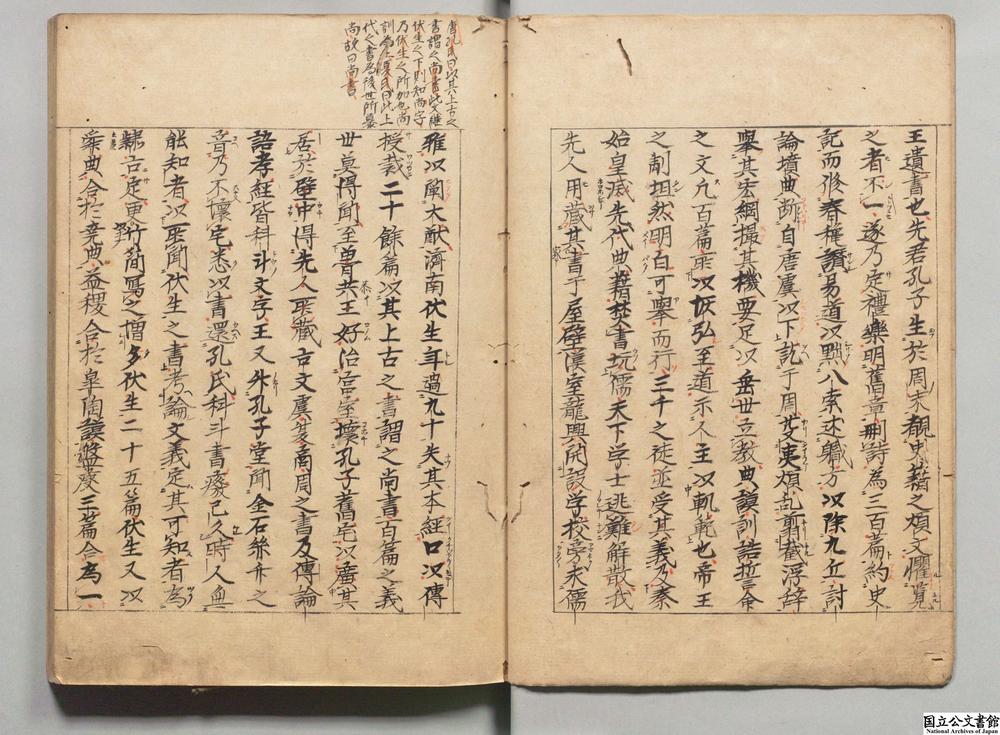 王遺書也先君孔子生於周末覩史籍之煩文懼覽
之者不一遂乃定禮樂明舊章刪詩為三百篇約史
記而脩春秋讃易道以黜八索述職方以除九丘討
論墳典斷自唐虞以下訖于周芟夷煩乱翦截浮辞
舉其宏綱撮其機要足以垂世立教典謨訓誥誓命
之文凡百篇所以恢弘至道示人主以軌範也帝王
之制坦然明白可舉而行三千之徒並受其義及秦
始皇滅先代典籍焚書坑儒天下学士逃難解散我
先人用藏其書于屋壁漢室龍興開設学校旁求儒
唐孔氏曰以其上古之
書謂之尚書此文継
伏生之下則知尚字
乃伏生之所加也尚
訓為上夏氏曰此上
代之書為後世所慕
尚故曰尚書
雅以闡大猷濟南伏生年過九十失其本經口以傳
授裁二十餘篇以其上古之書謂之尚書百篇之義
世莫得聞至魯共王好治宮室壞孔子舊宅以廣其
居於壁中得先人所藏古文虞夏商周之書及傳論
語孝經皆科斗文字王又升孔子堂聞金石絲竹之
音乃不懷宅悉以書還孔氏科斗書廢已久時人無
能知者以所聞伏生之書考論文義定其可知者為
隷古定更竹簡寫之増多伏生二十五篇伏生又以
舜典合於堯典益稷合於皐陶謨盤庚三篇合為一
国立公文書館
National Archives of Japan